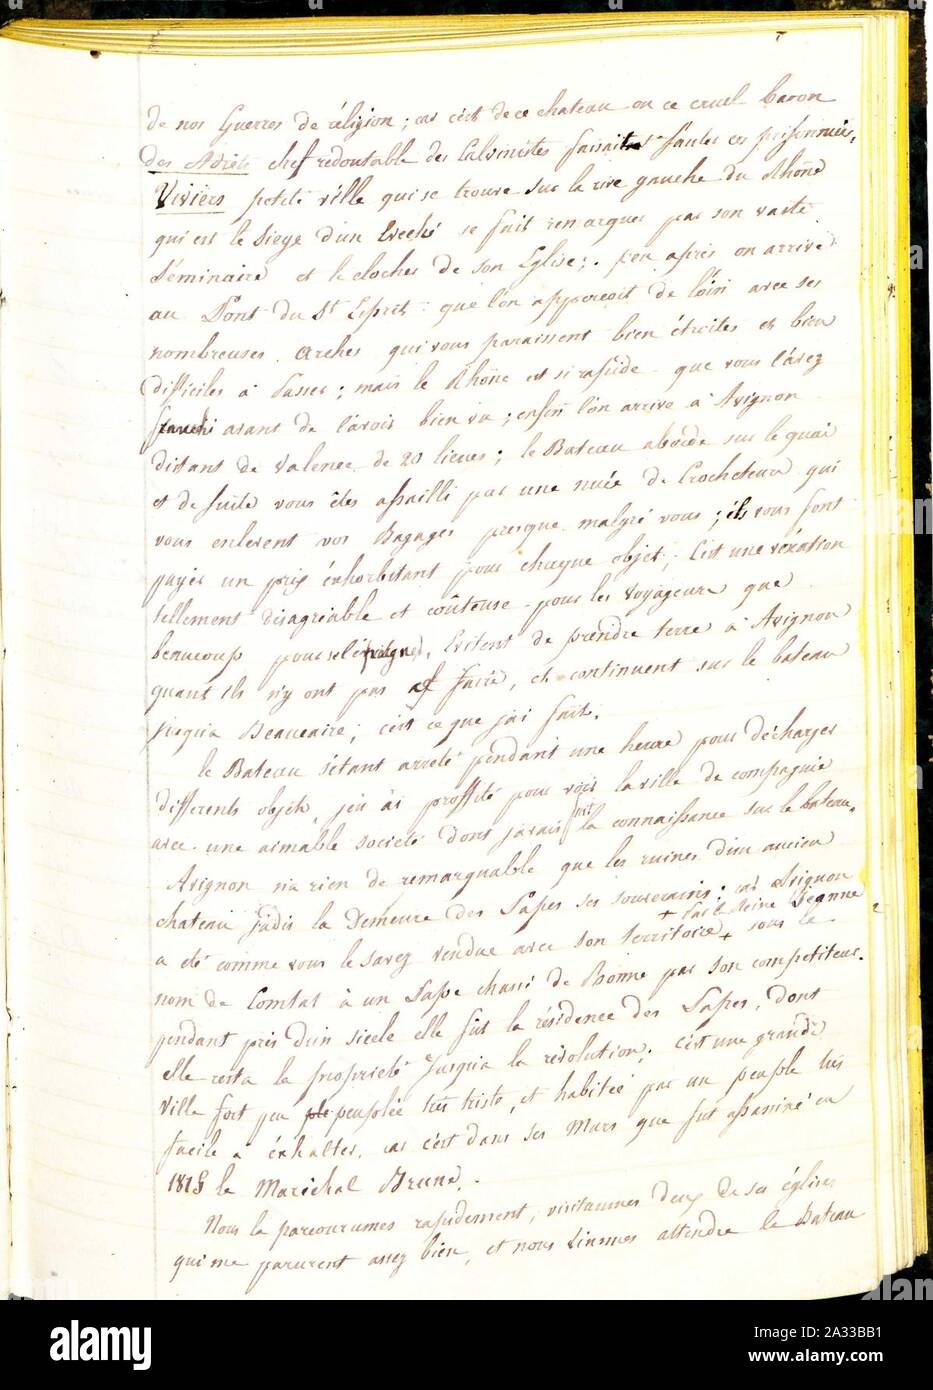 de nos Guerres de réligion; car c'est de ce chateau ou ce cruel baron
des Adrets chef redoutable des Calvinistes faisait sauter ces prisonniers.
Viviers petite ville qui se trouve sur la rive gauche du Rhône
qui est le Siege d'un Eveché se fait remarquer par son vaste
Séminaire et le clocher de son Eglise; peu après on arrive
au Pont du St Esprit que l'on apperçoit de loin avec ses
nombreuses arches qui vous paraissent bien étroites et bien
difficiles à passer; mais le Rhône est si rapide que vous l'avez
franchi avant de l'avoir bien vu; enfin l'on arrive à Avignon
distant de Valence de 20 lieues; le Bateau aborde sur le quai
et de suite vous êtes assailli par une nuée de Crocheteurs qui
vous enlevent vos Bagages presque malgré vous; ils vous font
payer un prix éxhorbitant pour chaque objet; C'est une véxation
tellement désagréable et coûteuse pour les Voyageurs que
beaucoup pour se l'épargner, Evitent de prendre terre à Avignon
quant ils n'y ont pas af faire, et continuent sur le bateau
jusqu'a Beaucaire; c'est ce que j'ai fait.
le Bateau s'étant arreté pendant une heure pour décharger
differents objets, j'en ai proffité pour voir la ville de compagnie
avec une aimable société dont j'avais fait la connaissance sur le bateau.
Avignon n'a rien de remarquable que les ruines d'un ancien
chateau jadis la Demeure des Papes ses souverains; car Avignon
a été comme vous le savez vendue avec son territoire + par la Reine Jeanne + sous le
nom de Comtat à un Pape chassé de Rome par son competiteur.
pendant près d'un siecle elle fut la résidence des Papes, dont
elle resta la proprieté jusqu'a la révolution. c'est une grande
Ville fort peu peuplée très triste, et habitée par un peuple très
facile a éxhalter, car c'est dans ses Murs que fut assassiné en
1815 le Maréchal Brune.
Nous la parcourumes rapidement, visitammes deux de ses églises
qui me parurent assez bien, et nous vinmes attendre le Bateau
alamy
Image ID: 2A33BB1
www.alamy.com